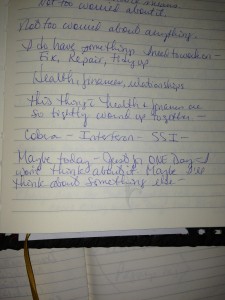 Not too worried about it.
Not too worried about anything.
I do have something I need to work on -
Fix, Repair, Tidy up
Health, finances, relationships
This thing is health & finance are
so tightly wound up together -
Cobra - Interferon - SSI -
Maybe today - Just for ONE Day - I
wont think about it. Maybe I'll
think about something else -